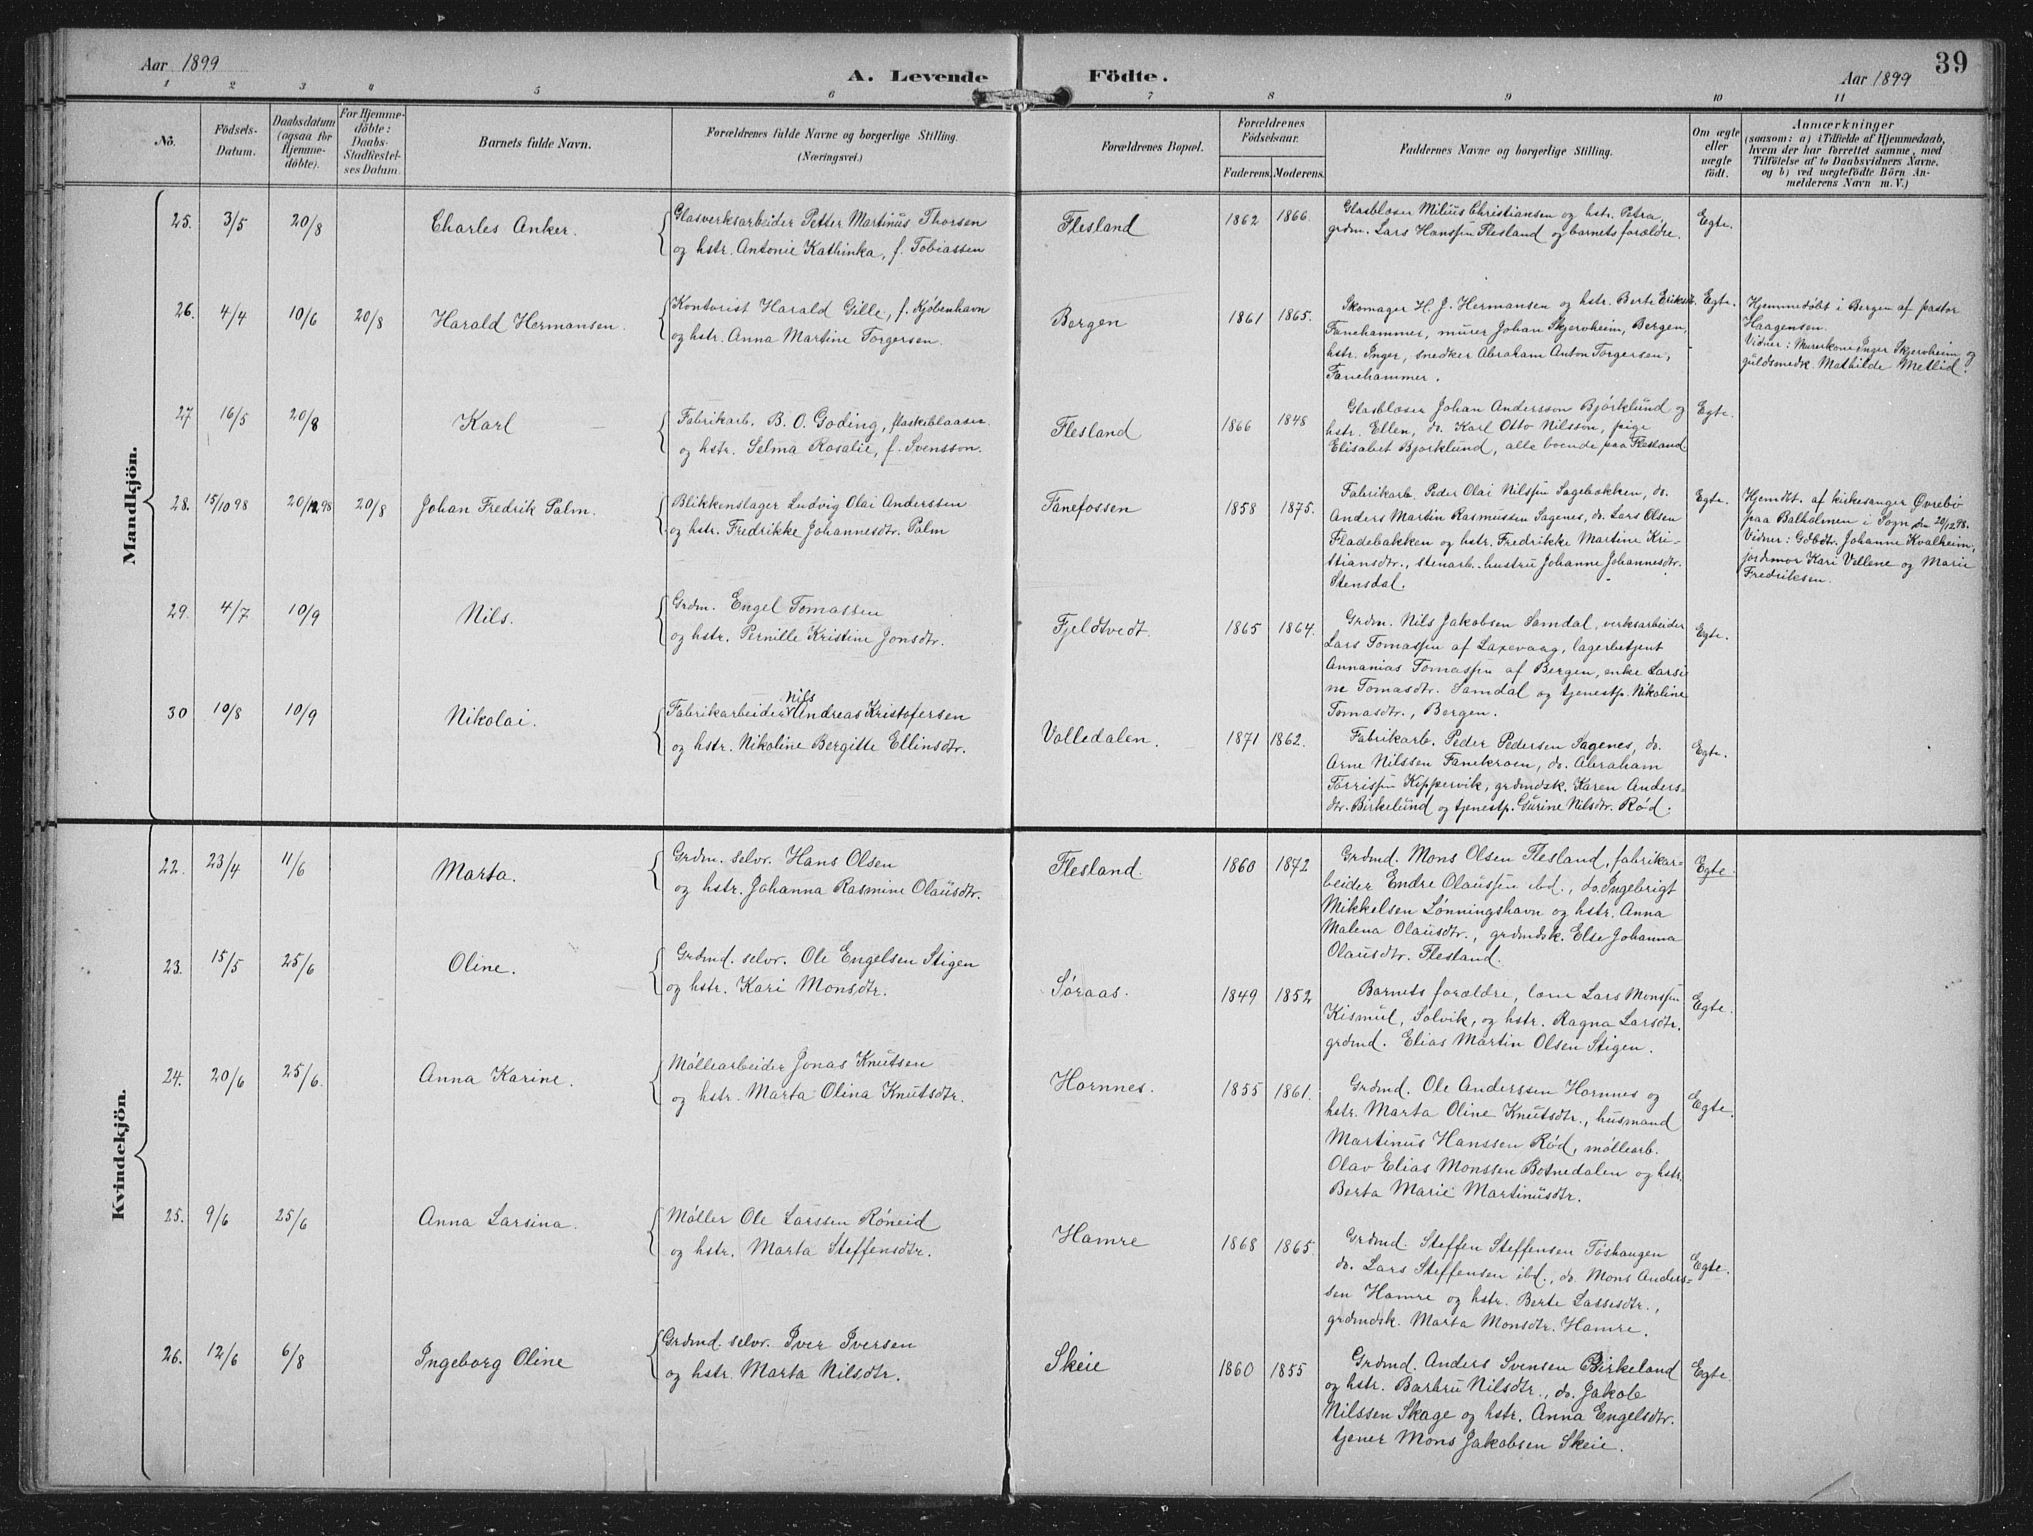 39
Aar 1899
A. Levende Födte.
Aar 1899
1 2 3 4 5 6 7 8 9 10 11
No.
Födsels-
Datum.
Daabsdatum
(ogsaa for
Hjemme-
döbte).
For Hjemme-
döbte:
Daabs-
Stadfæstel-
ses Datum.
Barnets fulde Navn.
Forældrenes fulde Navne og borgerlige Stilling.
(Næringsvei.)
Forældrenes Bopæl.
Forældrenes
Födselsaar.
Faderens. Moderens.
Faddernes Navne og borgerlige Stilling.
Om ægte
eller
uægte
født.
Anmærkninger
(saasom: a) i Tilfælde af Hjemmedaab,
hvem der har forrettet samme, med
Tilföielse af to Daabsvidners Navne.
og b) ved uægtefödte Börn An-
melderens Navn m. V.)
Mandkjön.
25. 3/5 20/8 Charles Anker.
Glasverksarbeider Petter Martinus Thorsen
og hstr. Antonie Kathinka, f. Tobiassen
Flesland 1862 1866.
Glasblaser Milius Christiansen og hstr. Petra,
grdm. Lars Hanssen Flesland og barnets forældre.
Egte.
26. 4/4 10/6 20/8 Harald Hermansen.
Kontorist Harald Gille, f. Kjøbenhavn
og hstr. Anna Martine Torgersen.
Bergen 1861 1865.
Skomager H. J. Hermansen og hstr. Berte Eriksdt.
Fanehammer, murer Johan Skjervheim, Bergen,
hstr. Inger, snedker Abraham Anton Torgersen,
Fanehammer.
Egte.
Hjemmedøbt i Bergen af pastor
Haagensen.
Vidner: Murerkone Inger Skjervheim og
guldsmedk. Mathilde Metlid.
27 16/5 20/8 Karl
Fabrikarb. B. O. Goding, flaskeblaaser
og hstr. Selma Rosalie, f. Svensson.
Flesland 1866 1848
Glasblaser Johan Andersson Bjørklund og
hstr. Ellen, do. Karl Otto Nilsson, pige
Elisabet Bjørklund, alle boende paa Flesland.
Egte.
28. 15/10 98 20/12 98 20/8 Johan Fredrik Palm.
Blikkenslager Ludvig Olai Anderssen
og hstr. Fredrikke Johannesdtr. Palm
Fanefossen 1858 1875.
Fabrikarb. Peder Olai Nilssen Sagebakken, do.
Anders Martin Rasmussen Sagenes, do. Lars Olsen
Fladebakken og hstr. Fredrikke Martine Kri-
stiansdtr., stenarb. hustru Johanne Johannesdtr.
Stensdal.
Egte.
Hjemdt. af kirkesanger Øvrebø
paa Balholmen i Sogn den 20/12 98.
Vidner: Gdbdtr. Johanne Kvalheim,
jordmor Kari Vellene og Marie
Fredriksen.
29. 4/7 10/9 Nils.
Grdm. Engel Tomassen
og hstr. Pernille Kristine Jonsdtr.
Fjeldtvedt. 1865 1864.
Grdm. Nils Jakobsen Samdal, verksarbeider
Lars Tomassen af Laxevaag, lagerbetjent
Annanias Tomassen af Bergen, enke Larsi-
ne Tomasdtr. Samdal og tjenestp. Nikoline
Tomasdtr., Bergen.
Egte.
30 10/8 10/9 Nikolai.
Fabrikarbeider Nils Andreas Kristofersen
og hstr. Nikoline Bergitte Ellinsdtr.
Valledalen. 1871 1862.
Fabrikarb. Peder Pedersen Sagenes, do.
Arne Nilssen Fanekroen, do. Abraham
Torrissen Kippervik, grdmdsk. Karen Anders-
dtr. Birkelund og tjenestp. Gurine Nilsdtr. Rød.
Egte.
Kvindekjön.
22. 23/4 11/6 Marta.
Grdm. selv. Hans Olsen
og hstr. Johanna Rasmine Olausdtr.
Flesland. 1860 1872
Grdmd. Mons Olsen Flesland, fabrikar-
beider Endre Olaussen ibd., do. Ingebrigt
Mikkelsen Lønningshavn og hstr. Anna
Malena Olausdtr., grdmdsk. Else Johanna
Olausdtr. Flesland.
Egte.
23. 15/5 25/6 Oline.
Grdmd. selv. Ole Engelsen Stigen
og hstr. Kari Monsdtr.
Søraas. 1849 1852
Barnets forældre, Lars Monssen
Kismul, Solvik, og hstr. Ragna Larsdtr.
grdmd. Elias Martin Olsen Stigen.
Egte.
24. 20/6 25/6. Anna Karine.
Møllearbeider Jonas Knutsen
og hstr. Marta Olina Knutsdtr.
Hornnes. 1855 1861.
Grdmd. Ole Anderssen Hornnes og
hstr. Marta Oline Knutsdtr., husmand
Martinus Hanssen Rød, møllearb.
Olav Elias Monssen Botnedalen og hstr.
Berta Marie Martinusdtr.
Egte.
25. 9/6 25/6 Anna Larsina.
Møller Ole Larssen Røneid
og hstr. Marta Steffensdtr.
Hamre 1868 1865.
Grdmd. Steffen Steffensen Tøshaugen
do. Lars Steffensen ibd., do. Mons Anders-
sen Hamre og hstr. Berte Lassesdtr.,
grdmdsk. Marta Monsdtr. Hamre.
Egte.
26. 12/6 6/8 Ingeborg Oline
Grdmd. selv. Iver Iversen
og hstr. Marta Nilsdtr.
Skeie 1860 1855
Grdmd. Anders Svensen Birkeland
og hstr. Barbru Nilsdtr., do. Jakob
Nilssen Skage og hstr. Anna Engelsdtr.
tjener Mons Jakobsen Skeie.
Egte.